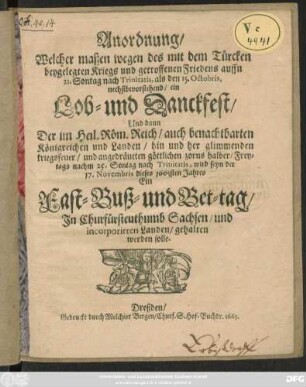 Anordnung/
Welcher maßen wegen des mit dem Türcken
beygelegten Kriegs und getroffenen Friedens auffn
21. Sontag nach Trinitatis, als den 15. Octobris,
nechstbevorstehend/ ein
Lob- und Danckfest/
Und dann
Der im Heil. Röm. Reich/ auch benachbarten
Königreichen und Landen/ hin und her glimmenden
kriegsfeuer/ und angedräueten göttlichen zorns halber/ Frey-
tags nachm 25. Sontag nach Trinitatis, wird seyn der
17. Novembris dieses 1665sten Jahres
Ein
Fast- Buß- und Bet-tag/
In Churfürstenthumb Sachsen/ und
incorporirten Landen/ gehalten
werden solle.
Dreßden/
Gedruckt durch Melchior Bergen/ Churf. S. Hof-Buchdr. 1665.
V c
4941